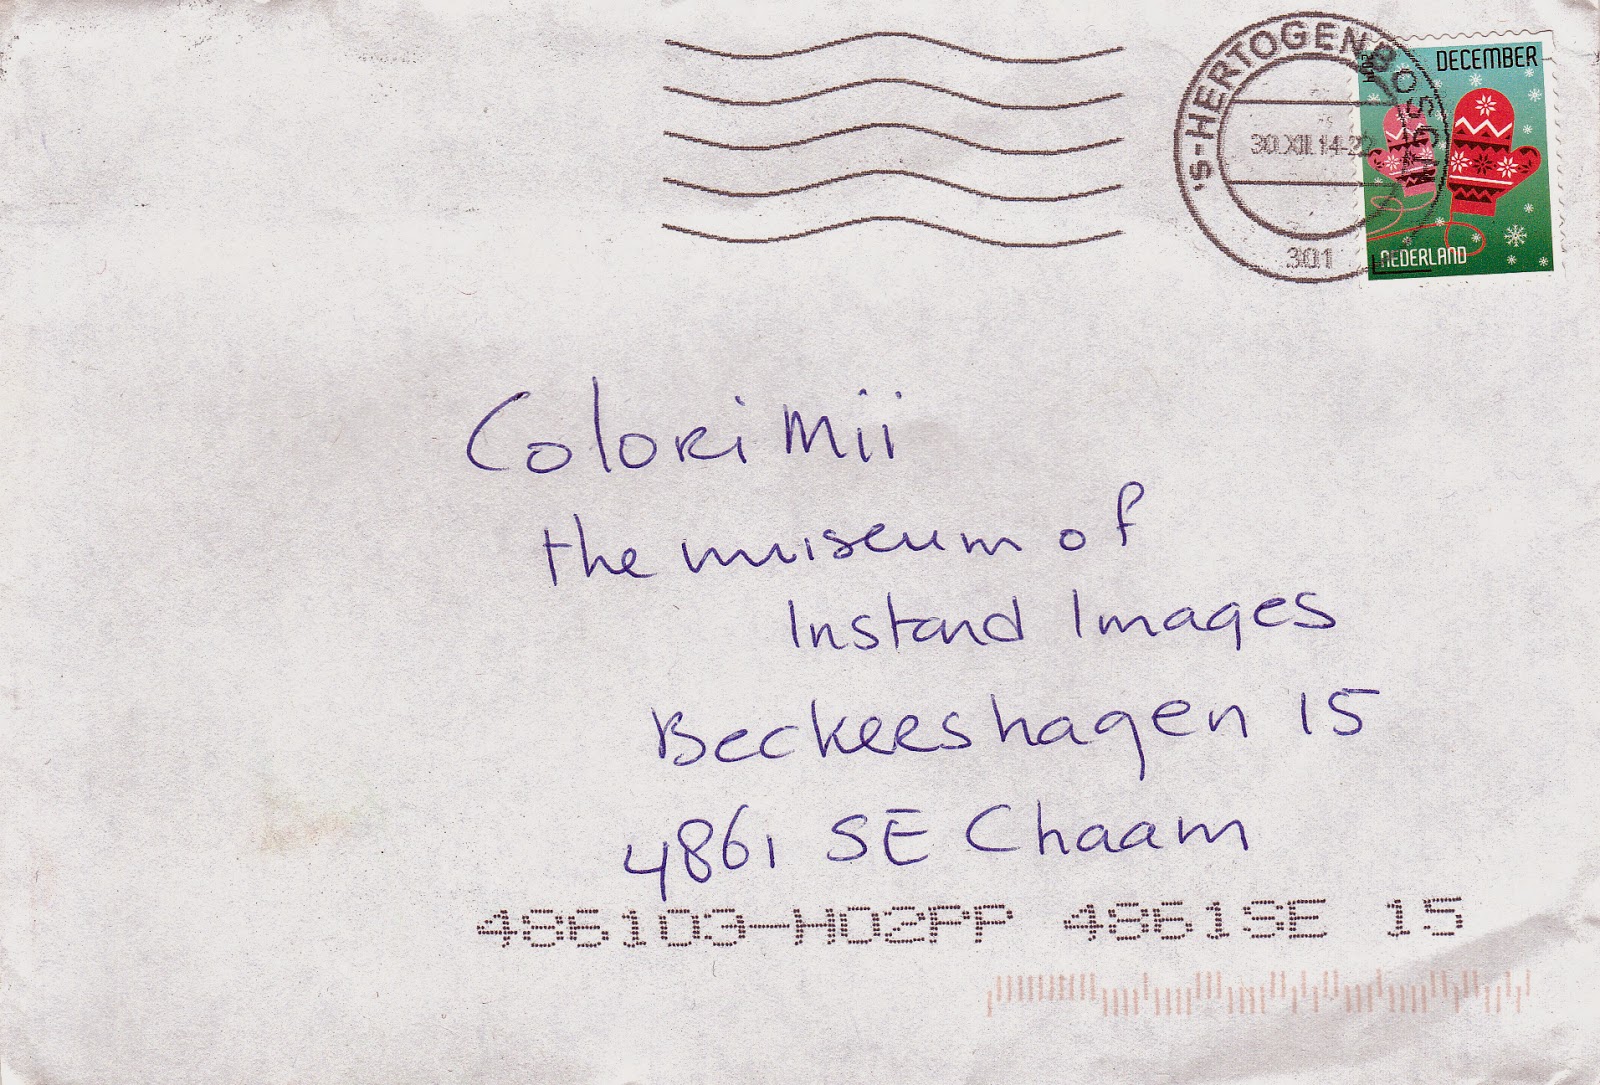 's-HERTOGENBOSCH
30.XII.14-22
301
2014
DECEMBER
NEDERLAND
Colori Mii
the museum of
Instand Images
Beckeeshagen 15
4861 SE Chaam
486103-H02PP 4861SE 15